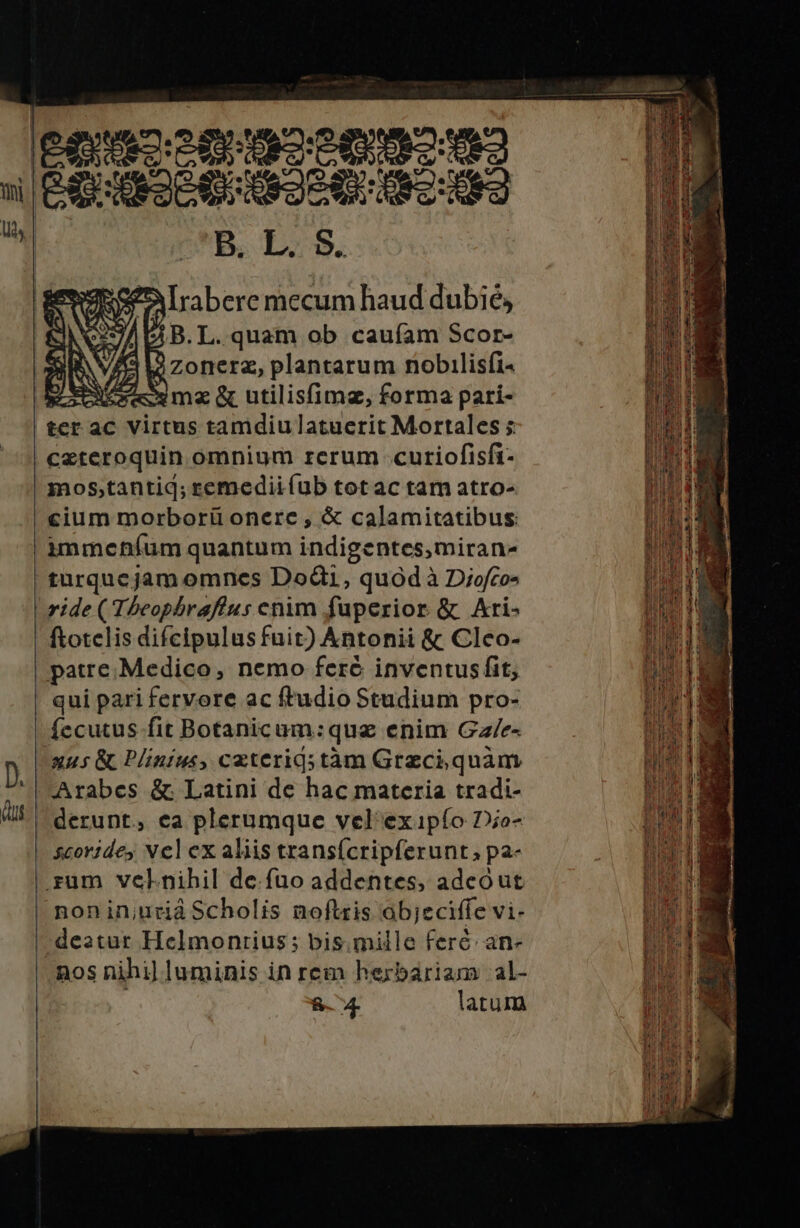 B. L. S.
MIrabere mecum haud dubiè,
B. L. quam ob cauſam Scor-
zoneræ, plantarum nobilisſi-
mæ & utilisſimæ, forma pari-
ter ac virtus tamdiu latuerit Mortales;
cæteroquin omnium rerum curioſisſi-
mos, tantiq; remedii ſub tot ac tam atro-
cium morborũ onere, & calamitatibus
immenſum quantum indigentes, miran-
turque jam omnes Docti, quód à Dioſco-
ride (Theophraſtus enim ſuperior & Ari-
ſtotelis diſcipulus fuit) Antonii & Cleo-
patre Medico, nemo ferè inventus ſit,
qui pari fervore ac ſtudio Studium pro-
ſecutus ſit Botanicum: quæ enim Gale-
nus & Plinius, cæteriq; tàm Græci, quàm
Arabes & Latini de hac materia tradi-
derunt, ea plerumque vel ex ipſo Dio-
scoride, vel ex aliis transſcripſerunt, pa-
rum vel nihil de ſuo addentes, adeò ut
non injuriâ Scholis noſtris abjeciſſe vi-
deatur Helmontius; bis mille ferè an-
nos nihil luminis in rem herbariam al-
a 4 latum